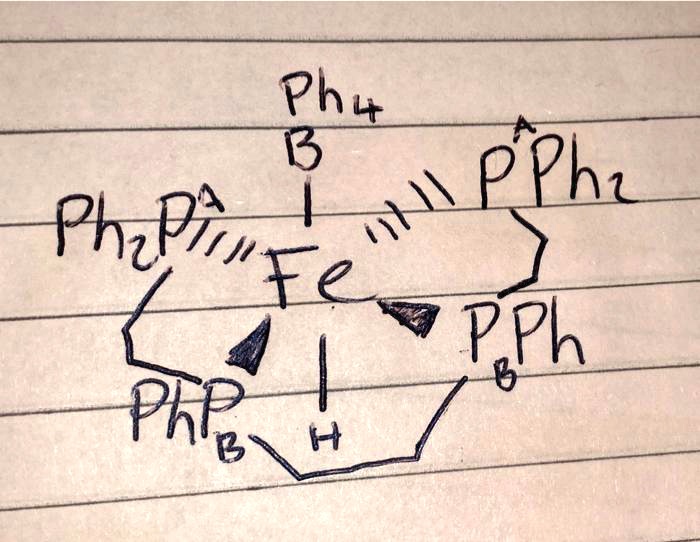 Ph4
B
PAPh2
Ph2PA
Fe
PBPh
PhPB
H